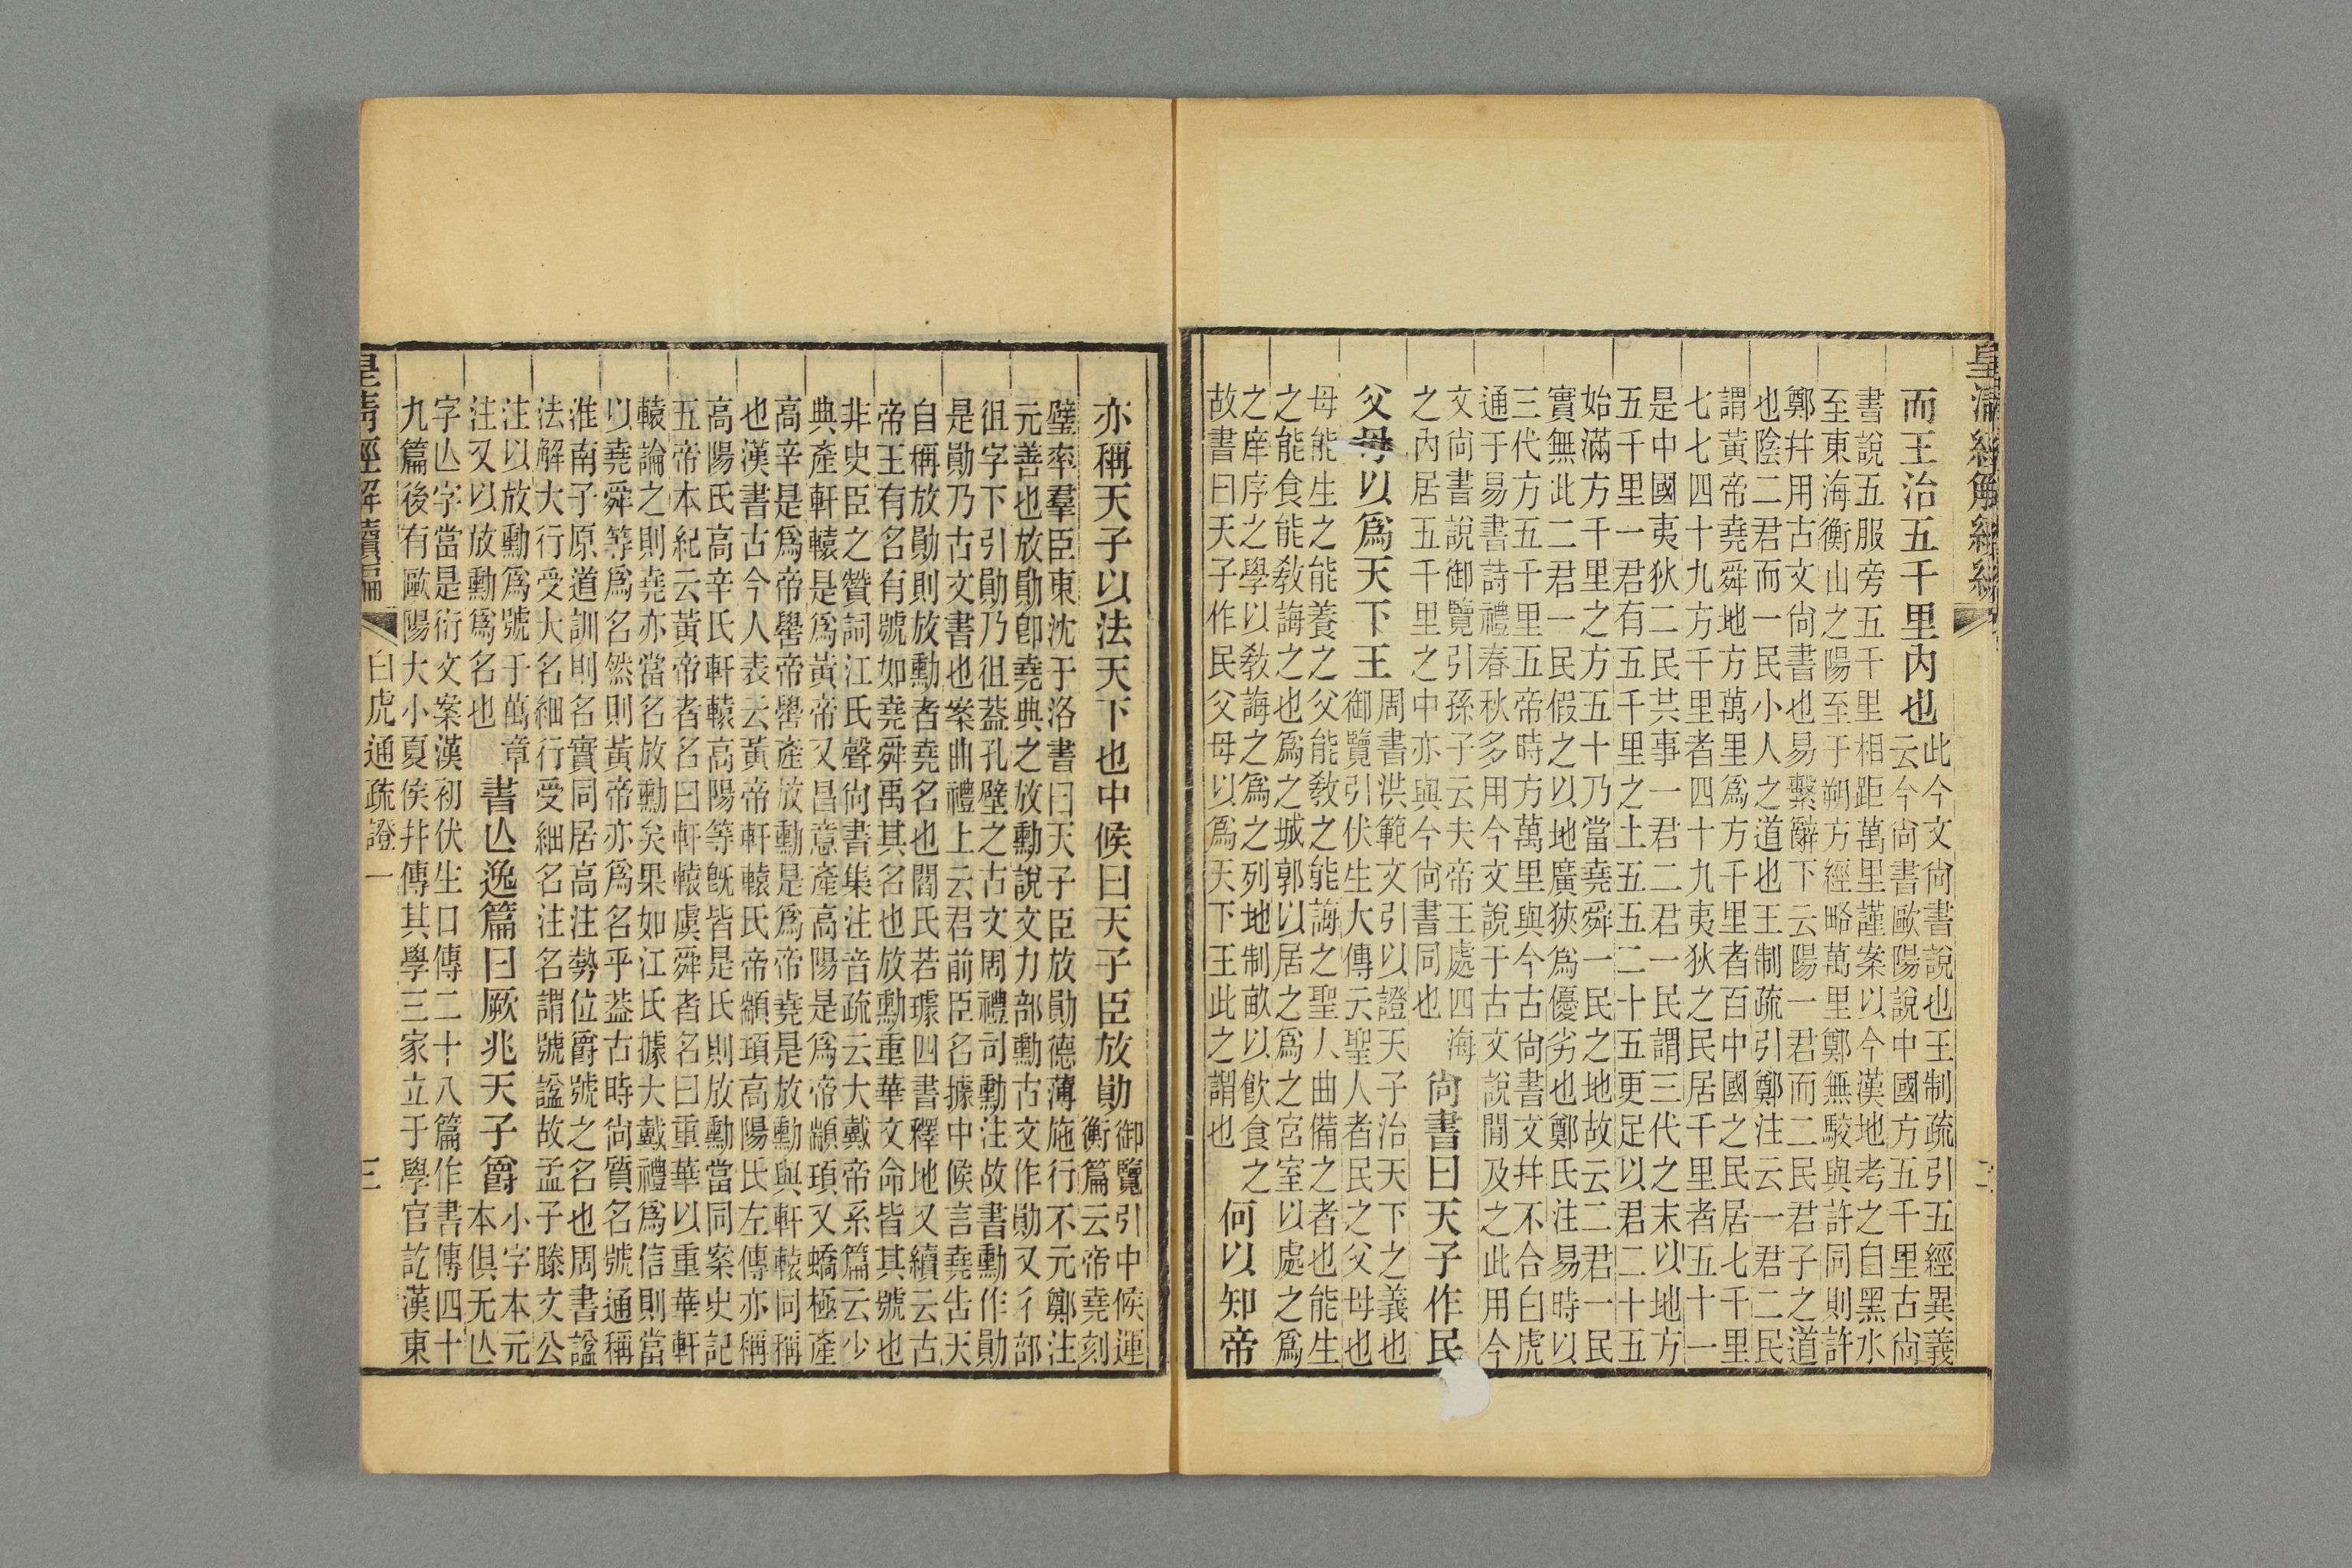 皇清經解續編
二
而王治五千里內也此今文尙書說也王制疏引五經異義
云今尙書歐陽說中國方五千里古尙
書說五服旁五千里相距萬里謹案以今漢地考之自黑水
至東海衡山之陽至于朔方經略萬里鄭無駁與許同則許
鄭幷用古文尙書也易繫辭下云陽一君而二民君子之道
也陰二君而一民小人之道也王制疏引鄭注云一君二民
謂黃帝堯舜地方萬里爲方千里者百中國之民居七千里
七七四十九方千里者四十九夷狄之民居千里者五十一
是中國夷狄二民共事一君二君一民謂三代之末以地方
五千里一君有五千里之土五五二十五更足以君二十五
始滿方千里之方五十乃當堯舜一民之地故云二君一民
實無此二君一民假之以地廣狹爲優劣也鄭氏注易時以
三代方五千里五帝時方萬里與今古尙書文幷不合白虎
通于易書詩禮春秋多用今文說于古文說閒及之此用今
文尙書說御覽引孫子云夫帝王處四海
之內居五千里之中亦與今尙書同也
尙書曰天子作民
父母以爲天下王周書洪範文引以證天子治天下之義也
御覽引伏生大傳云聖人者民之父母也
母能生之能養之父能敎之能誨之聖人曲備之者也能生
之能食能敎誨之也爲之城郭以居之爲之宮室以處之爲
之庠序之學以敎誨之爲之列地制畝以飮食之
故書曰天子作民父母以爲天下王此之謂也
何以知帝
亦稱天子以法天下也中候曰天子臣放勛御覽引中候運
衡篇云帝堯刻
璧率羣臣東沈于洛書曰天子臣放勛德薄施行不元鄭注
元善也放勛卽堯典之放勳說文力部勳古文作勛又彳部
徂字下引勛乃徂葢孔壁之古文周禮司勳注故書勳作勛
是勛乃古文書也案曲禮上云君前臣名據中候言堯吿天
自稱放勛則放勳者堯名也閻氏若璩四書釋地又續云古
帝王有名有號如堯舜禹其名也放勳重華文命皆其號也
非史臣之贊詞江氏聲尙書集注音疏云大戴帝系篇云少
典產軒轅是爲黃帝又昌意產高陽是爲帝顓頊又蟜極產
高辛是爲帝嚳帝嚳產放勳是爲帝堯是放勳與軒轅同稱
也漢書古今人表云黃帝軒轅氏帝顓頊高陽氏左傳亦稱
高陽氏高辛氏軒轅高陽等旣皆是氏則放勳當同案史記
五帝本紀云黃帝者名曰軒轅虞舜者名曰重華以重華軒
轅論之則堯亦當名放勳矣果如江氏據大戴禮爲信則當
以堯舜等爲名然則黃帝亦爲名乎葢古時尙質名號通稱
淮南子原道訓則名實同居高注勢位爵號之名也周書諡
法解大行受大名細行受細名注名謂號諡故孟子滕文公
注以放勳爲號于萬章
注又以放勳爲名也
書亾逸篇曰厥兆天子爵小字本元
本俱无亾
字亾字當是衍文案漢初伏生口傳二十八篇作書傳四十
九篇後有歐陽大小夏侯幷傳其學三家立于學官訖漢東
皇淸經解續編
白虎通疏證一
三